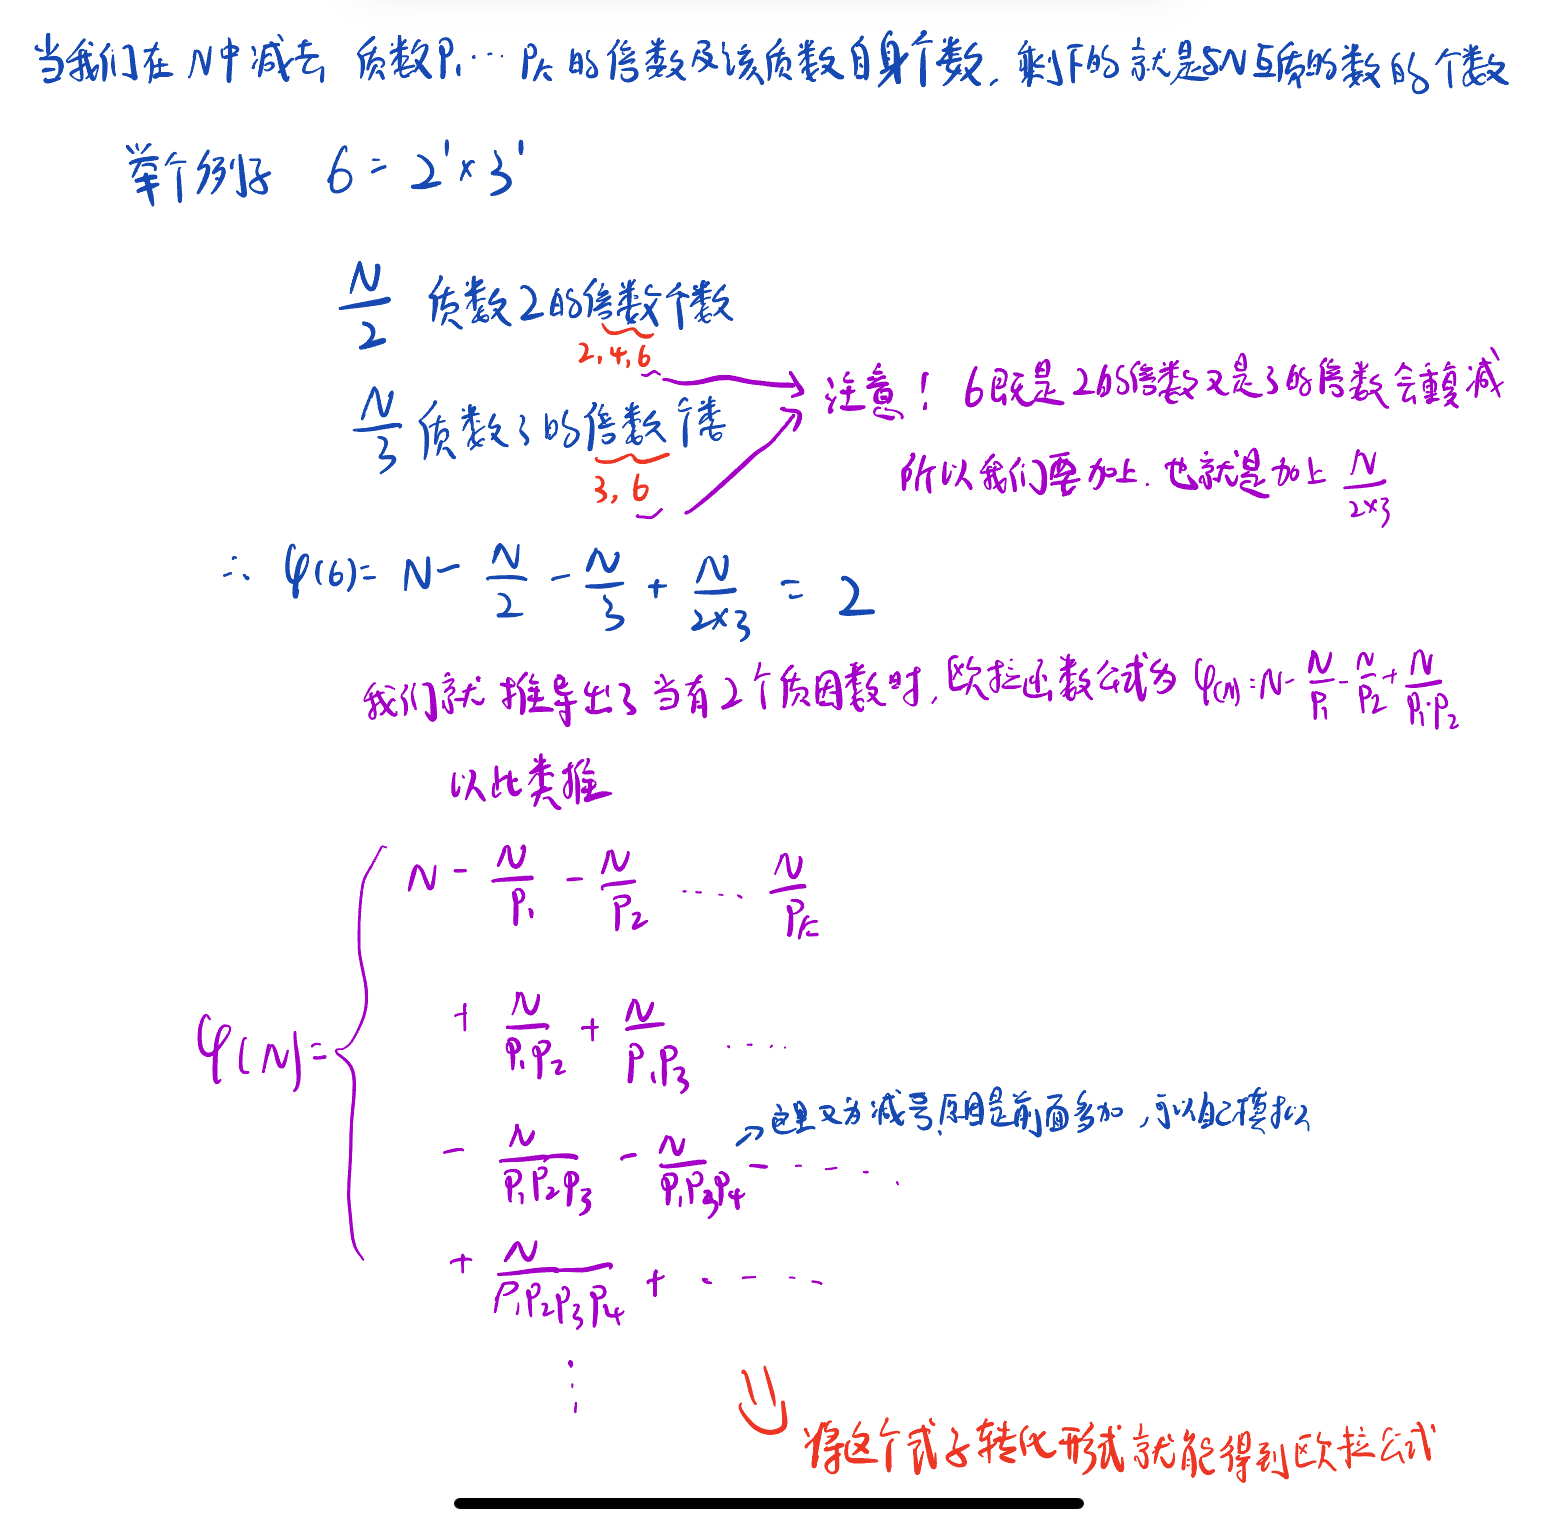 当我们在N中减去 质数P₁…Pₖ的倍数及该质数自身个数，剩下的就是与N互质的数的个数
举个例子 6=2¹×3¹
N/2 质数2的倍数个数
2,4,6
N/3 质数3的倍数个数
3,6
注意！6既是2的倍数又是3的倍数会重复减
所以我们要加上.也就是加上 N/(2×3)
∴ φ(6)= N - N/2 - N/3 + N/(2×3) = 2
我们就推导出了当有2个质因数时,欧拉函数公式为 φ(N)=N-N/P₁-N/P₂+N/(P₁·P₂)
以此类推
φ(N)=
N - N/P₁ - N/P₂ ···· N/Pₖ
+ N/(P₁P₂) + N/(P₁P₃) ····
- N/(P₁P₂P₃) - N/(P₁P₃P₄) - ····
这里又为减号,原因是前面多加,可以自己模拟
+ N/(P₁P₂P₃P₄) + ····
⋮
将这个式子转化形式就能得到欧拉公式